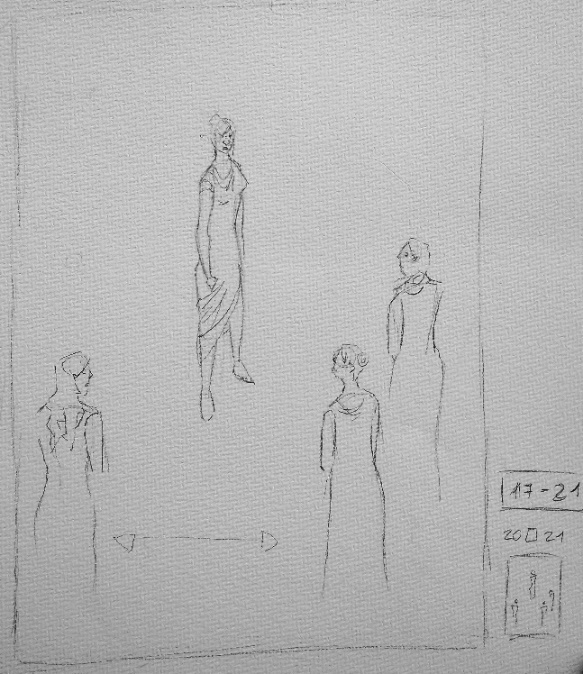 17-21
20 21